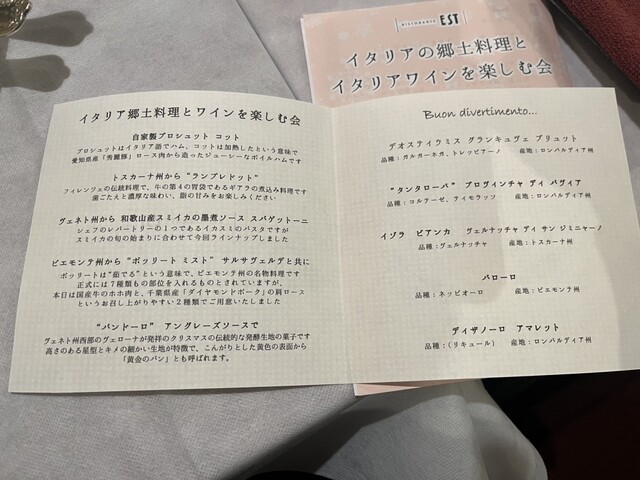 RISTORANTE EST
イタリアの郷土料理と
イタリアワインを楽しむ会
イタリア郷土料理とワインを楽しむ会
自家製プロシュット コット
プロシュットはイタリア語でハム、コットは加熱したという意味で
愛知県産「秀麗豚」ロース肉から造ったジューシーなボイルハムです
トスカーナ州から “ランプレドット”
フィレンツェの伝統料理で、牛の第4の胃袋であるギアラの煮込み料理です
歯ごたえと濃厚な味わい、脂の甘みをお楽しみください
ヴェネト州から 和歌山産スミイカの墨煮ソース スパゲットーニ
シェフのレパートリーの1つであるイカスミのパスタですが
スミイカの旬の始まりに合わせて今回ラインナップしました
ピエモンテ州から “ボッリート ミスト” サルサヴェルデと共に
ボッリートは“茹でる”という意味で、ピエモンテ州の名物料理です
正式には7種類もの部位を入れるものとされていますが、
本日は国産牛のホホ肉と、千葉県産「ダイヤモンドポーク」の肩ロース
というお召し上がりやすい2種類でご用意いたしました
“パンドーロ” アングレーズソースで
ヴェネト州西部のヴェローナが発祥のクリスマスの伝統的な発酵生地の菓子です
高さのある星型とキメの細かい生地が特徴で、こんがりとした黄色の表面から
「黄金のパン」とも呼ばれます。
Buon divertimento...
デオステイラミス グランキュヴェ ブリュット
品種：ガルガーネガ、トレッビアーノ 産地：ロンバルディア州
“タンタローバ” プロヴィンチャ ディ パヴィア
品種：コルテーゼ、ティモラッソ 産地：ロンバルディア州
イゾラ ビアンカ ヴェルナッチャ ディ サン ジミニャーノ
品種：ヴェルナッチャ 産地：トスカーナ州
バローロ
品種：ネッビオーロ 産地：ピエモンテ州
ディザノーロ アマレット
品種：(リキュール) 産地：ロンバルディア州